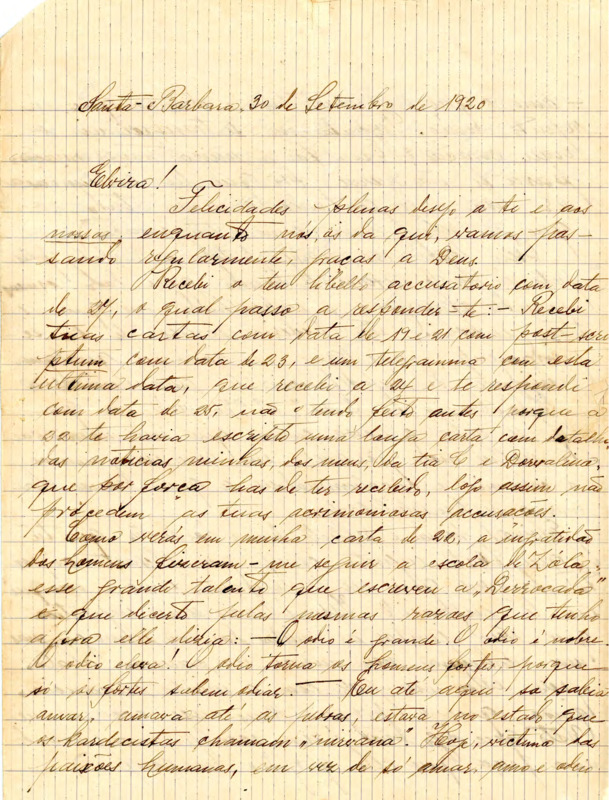 Santa-Barbara, 30 de Setembro de 1920
Elvira!
Felicidades plenas desejo a ti e aos
nossos, enquanto nós, os da qui, vamos pas-
sando regularmente, graças a Deus.
Recebi o teu libello accusatorio com data
de 27, o qual passo a responder-te: - Recebi
tuas cartas com data de 19 e 21 com post-scri
ptum com data de 23, e um telegramma com esta
ultima data, que recebi a 24 e te respondi
com data de 25, não o tendo feito antes porque a
22 te havia escripto uma longa carta com detalha
das noticias minhas, dos meus, da tia C e Dorvalina,
que por força has de ter recebido, logo assim não
procedem as tuas acrimoniosas accusações.
Como verás em minha carta de 22, a "ingratidão
dos homens fizeram-me seguir a escola de Zóla,
esse grande talento que escreveu a "Derrocada"
e que decerto pelas mesmas razões que tenho
agora elle dizia: - O odio é grande. O odio é nobre.
O odio eleva! O odio torna os homens fortes - porque
só os fortes sabem odiar. - Eu até aqui só sabia
amar, amava até as pedras, estava no estado que
os kardecistas chamam "nirvana". Hoje, victima das
paixões humanas, em vez de só amar, amo e odeio